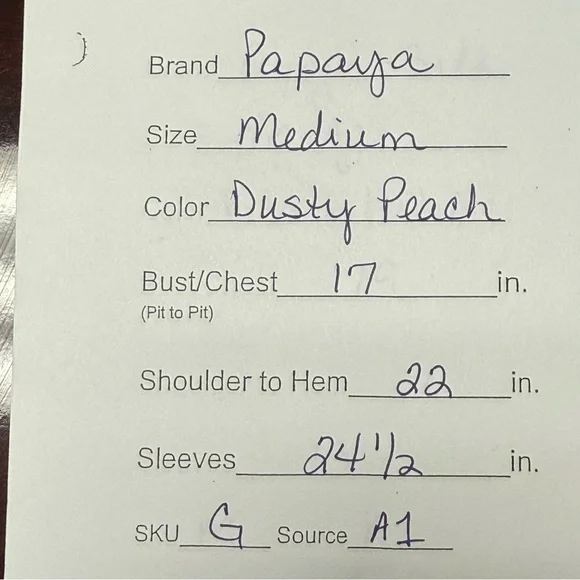 Brand Papaya
Size Medium
Color Dusty Peach
Bust/Chest 17 in.
(Pit to Pit)
Shoulder to Hem 22 in.
Sleeves 24 1/2 in.
SKU G Source A1